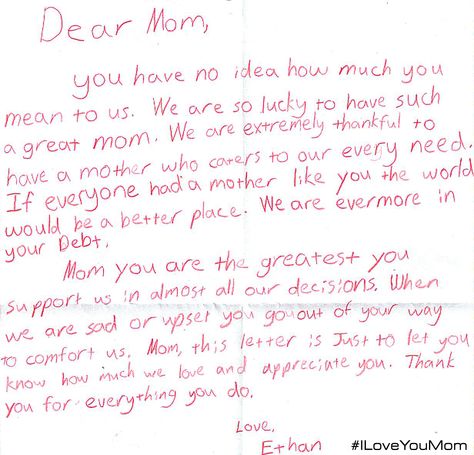 Dear Mom,
you have no idea how much you
mean to us. We are so lucky to have such
a great mom. We are extremely thankful to
have a mother who caters to our every need.
If everyone had a mother like you the world
would be a better place. We are evermore in
your Debt.
Mom you are the greatest you
support us in almost all our decisions. When
we are sad or upset you go out of your way
to comfort us. Mom, this letter is Just to let you
know how much we love and appreciate you. Thank
you for everything you do.
Love,
Ethan
#ILoveYouMom